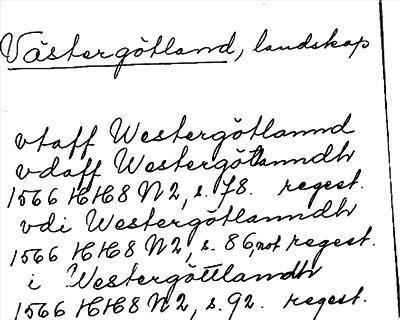 Västergötland, landskap
vtaff Westergötlannd
vdaff Westergötlanndh
1566 HH8 N2, s. 78. regest.
vdi Westergötlanndh
1566 HH8 N2, s. 86, not regest.
i Westergöttlandh
1566 HH8 N2, s. 92. regest.